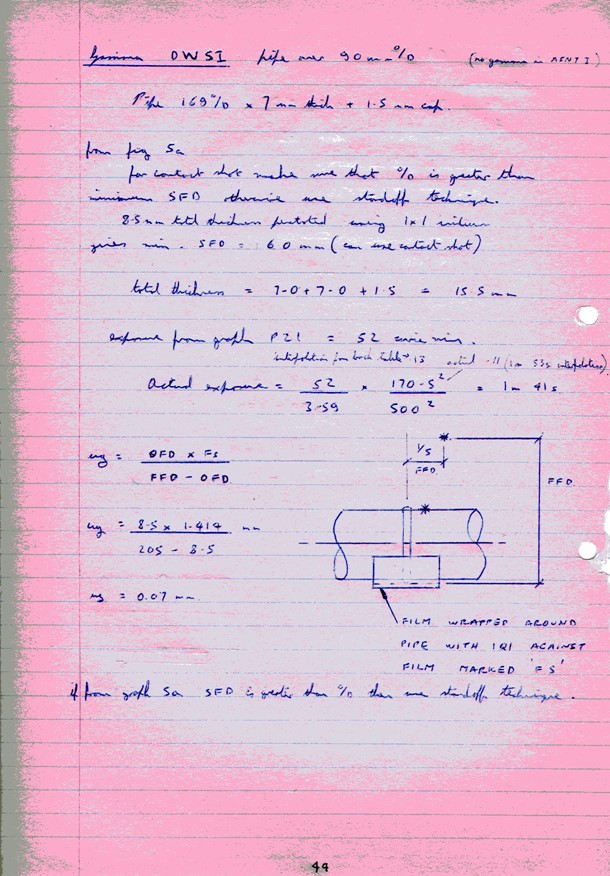 Gamma DWSI pipe over 90 mm o/D (no gamma in ASNT I.)
Pipe 169 o/D x 7 mm thick + 1.5 mm cap.
from fig 5a
for contact shot make sure that o/D is greater than
minimum SFD otherwise use standoff technique.
8.5 mm total thickness penetrated using 1x1 iridium
gives min. SFD = 160 mm (can use contact shot)
total thickness = 7.0 + 7.0 + 1.5 = 15.5 mm
exposure from graph P21 = 52 curie min.
interpolation from back table 13 actual .11 (1m 53s interpolation)
Actual exposure = 52 / 3.59 x 170.5² / 500² = 1m 41s
ug = OFD x Fs / FFD - OFD
ug = 8.5 x 1.414 / 205 - 8.5 mm
ug = 0.07 mm
1/5
FFD
FFD
FILM WRAPPED AROUND
PIPE WITH IQI AGAINST
FILM MARKED 'FS'
if from graph 5a SFD is greater than o/D then use standoff technique.
44